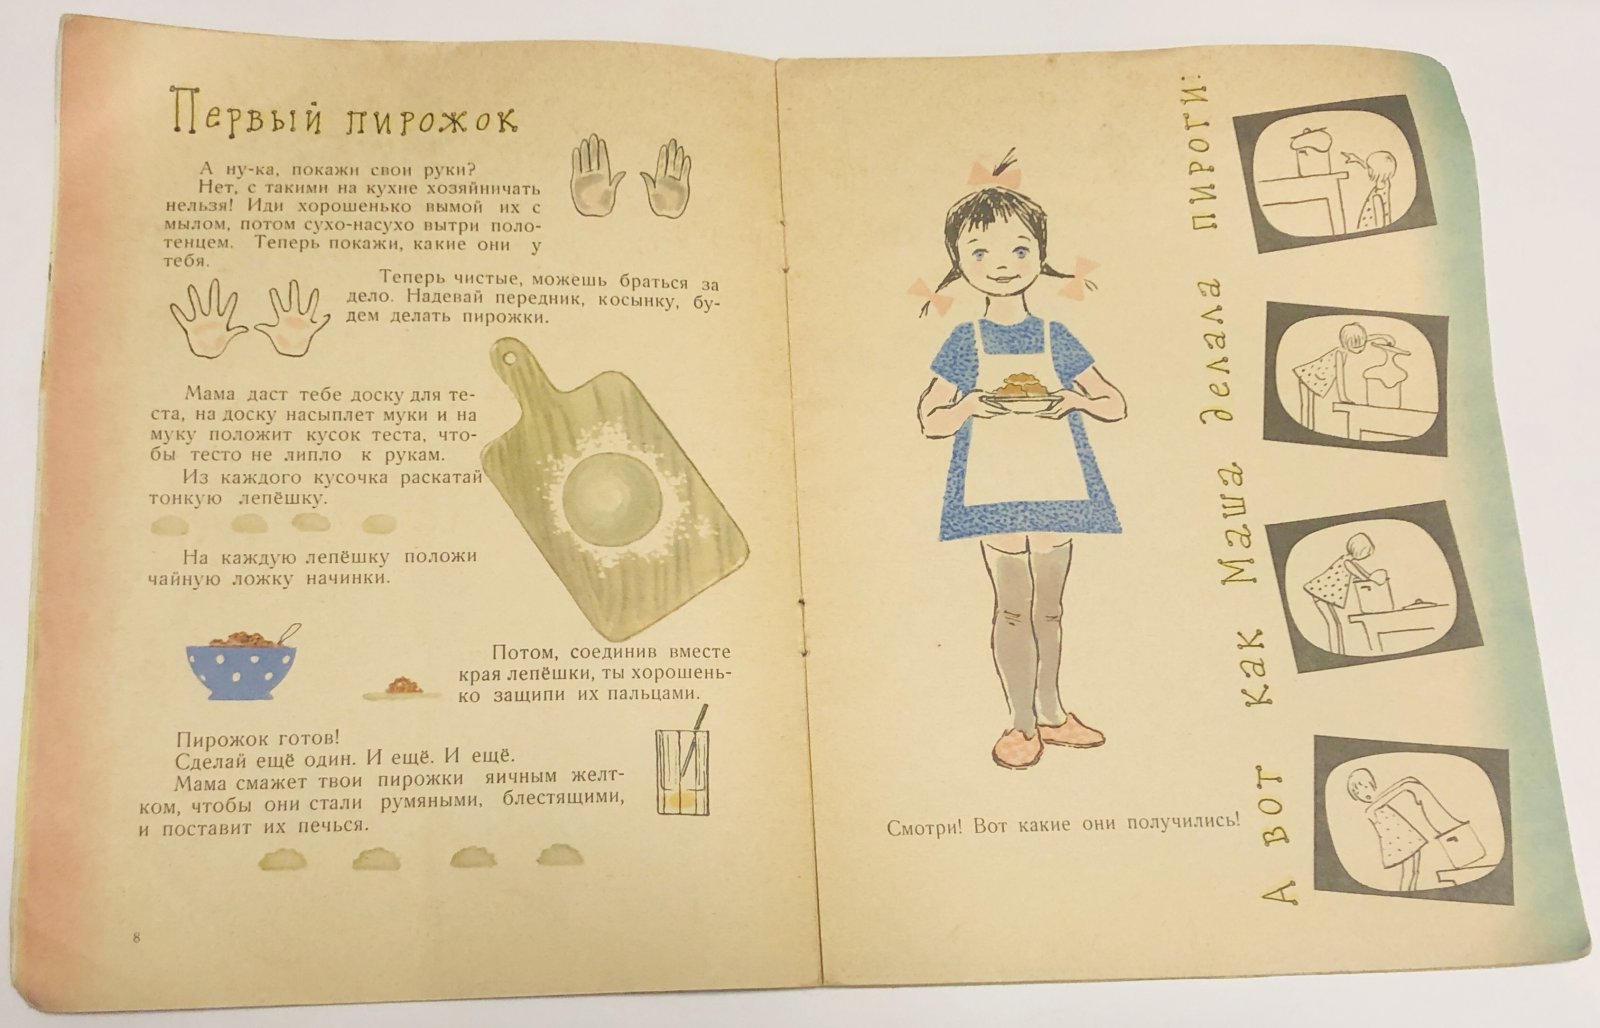 Первый пирожок
А ну-ка, покажи свои руки?
Нет, с такими на кухне хозяйничать
нельзя! Иди хорошенько вымой их с
мылом, потом сухо-насухо вытри поло-
тенцем. Теперь покажи, какие они у
тебя.
Теперь чистые, можешь браться за
дело. Надевай передник, косынку, бу-
дем делать пирожки.
Мама даст тебе доску для те-
ста, на доску насыплет муки и на
муку положит кусок теста, что-
бы тесто не липло к рукам.
Из каждого кусочка раскатай
тонкую лепёшку.
На каждую лепёшку положи
чайную ложку начинки.
Потом, соединив вместе
края лепёшки, ты хорошень-
ко защипи их пальцами.
Пирожок готов!
Сделай ещё один. И ещё. И ещё.
Мама смажет твои пирожки яичным желт-
ком, чтобы они стали румяными, блестящими,
и поставит их печься.
8
Смотри! Вот какие они получились!
А вот как Маша делала пироги: